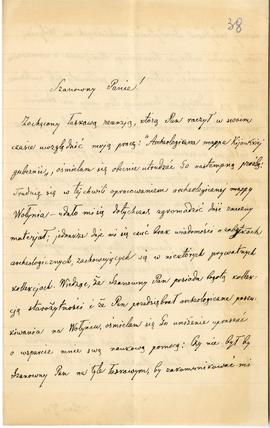 38
Szanowny Panie!
Zachęcony łaskawą recenzją, którą Pan raczył w swoim
czasie względnić moją pracę: "Archeologiczna mappa Kijowskiej
gubernii", ośmielam się obecnie utrudzać Go następną prośbą:
Trudnię się w tej chwili opracowaniem archeologicznej mappy
Wołynia – udało mi się dotychczas zgromadzić dość znaczny
materjał; jednakże daje mi się czuć brak wiadomości o zabytkach
archeologicznych, zachowujących się w niektórych prywatnych
kollekcjach. Wiedząc, że Szanowny Pan posiada bogatą kollek-
cję starożytności i że Pan przedsiębrał archeologiczne poszu-
kiwania na Wołyniu, ośmielam się Go uniżenie upraszać
o wsparcie mnie swą naukową pomocą: Czy nie był by
Szanowny Pan na tyle łaskawym, by zakomunikować mi